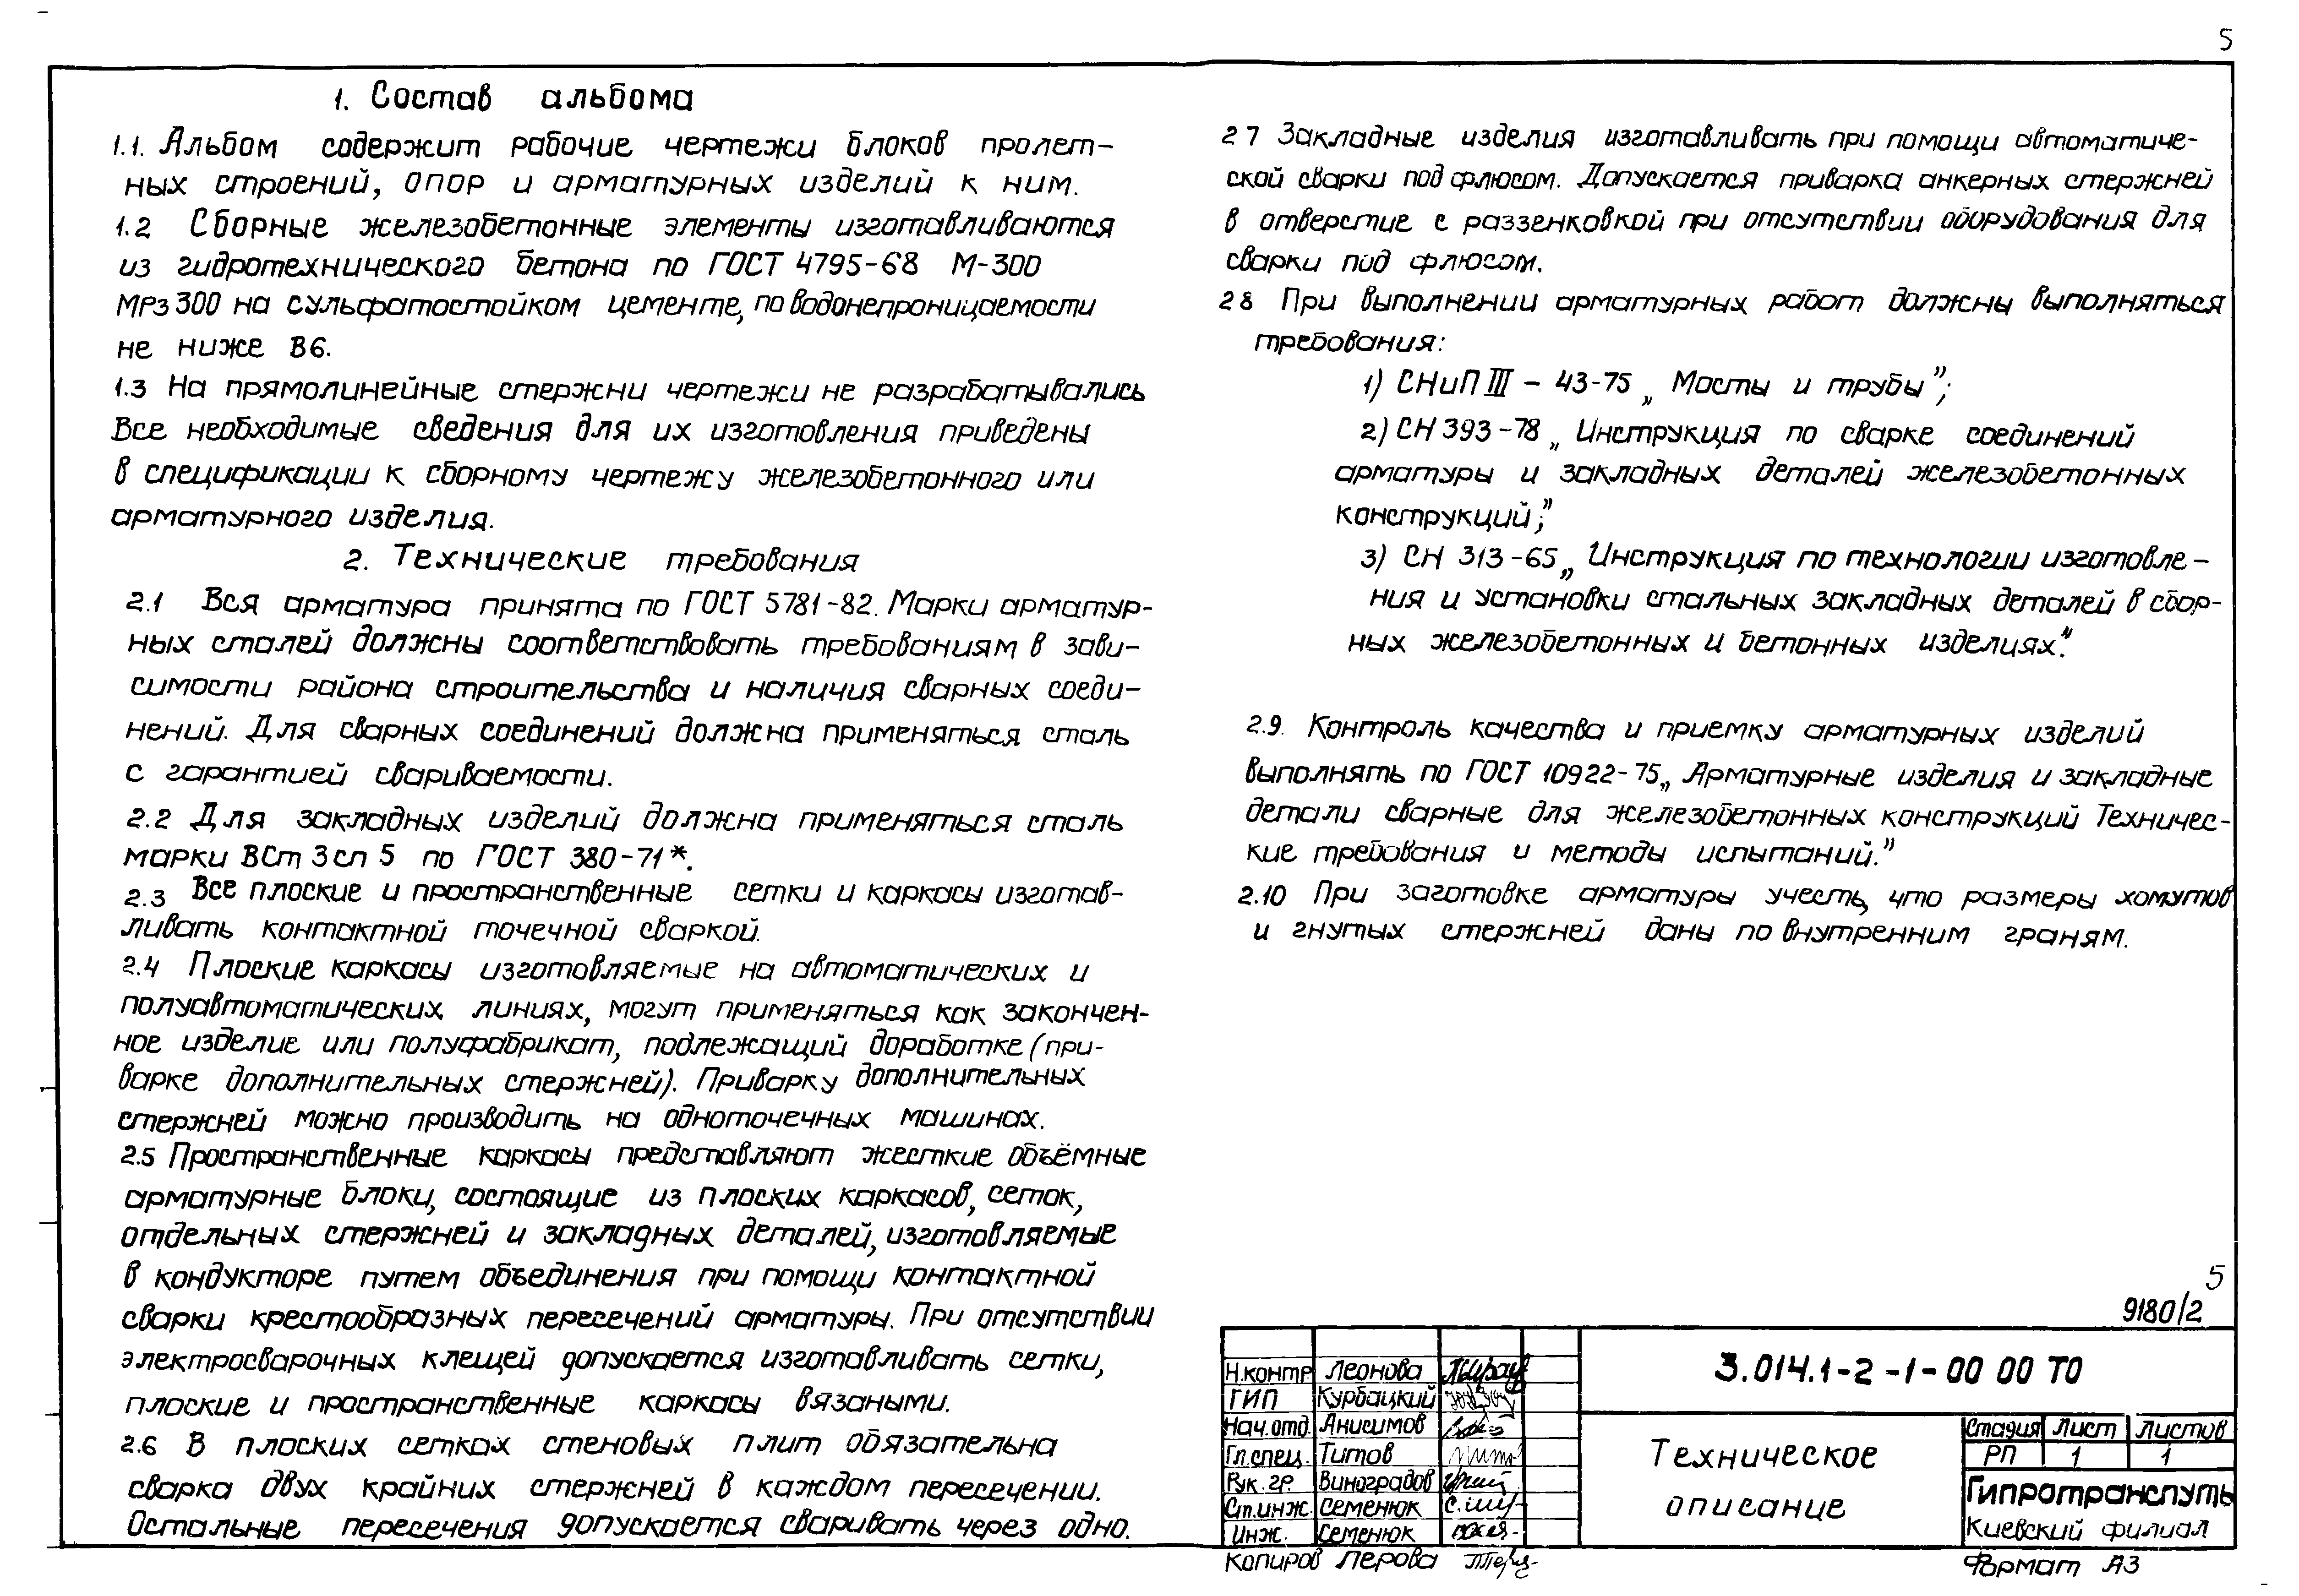 5
1. Состав альбома
1.1. Альбом содержит рабочие чертежи блоков пролет-
ных строений, опор и арматурных изделий к ним.
1.2 Сборные железобетонные элементы изготавливаются
из гидротехнического бетона по ГОСТ 4795-68 М-300
МРз 300 на сульфатостойком цементе, по водонепроницаемости
не ниже В6.
1.3 На прямолинейные стержни чертежи не разрабатывались
Все необходимые сведения для их изготовления приведены
в спецификации к сборному чертежу железобетонного или
арматурного изделия.
2. Технические требования
2.1 Вся арматура принята по ГОСТ 5781-82. Марки арматур-
ных сталей должны соответствовать требованиям в зави-
симости района строительства и наличия сварных соеди-
нений. Для сварных соединений должна применяться сталь
с гарантией свариваемости.
2.2 Для закладных изделий должна применяться сталь
марки ВСт 3 сп 5 по ГОСТ 380-71*.
2.3 Все плоские и пространственные сетки и каркасы изготав-
ливать контактной точечной сваркой.
2.4 Плоские каркасы изготовляемые на автоматических и
полуавтоматических линиях, могут применяться как закончен-
ное изделие или полуфабрикат, подлежащий доработке (при-
варке дополнительных стержней). Приварку дополнительных
стержней можно производить на одноточечных машинах.
2.5 Пространственные каркасы представляют жесткие объёмные
арматурные блоки, состоящие из плоских каркасов, сеток,
отдельных стержней и закладных деталей, изготовляемые
в кондукторе путем объединения при помощи контактной
сварки крестообразных пересечений арматуры. При отсутствии
электросварочных клещей допускается изготавливать сетки,
плоские и пространственные каркасы вязаными.
2.6 В плоских сетках стеновых плит обязательна
сварка двух крайних стержней в каждом пересечении.
Остальные пересечения допускается сваривать через одно.
2 7 Закладные изделия изготавливать при помощи автоматиче-
ской сварки под флюсом. Допускается приварка анкерных стержней
в отверстие с раззенковкой при отсутствии оборудования для
сварки под флюсом.
2 8 При выполнении арматурных работ должны выполняться
требования:
1) СНиП III - 43-75 „Мосты и трубы";
2) СН 393-78 „Инструкция по сварке соединений
арматуры и закладных деталей железобетонных
конструкций";
3) СН 313-65 „Инструкция по технологии изготовле-
ния и установки стальных закладных деталей в сбор-
ных железобетонных и бетонных изделиях."
2.9. Контроль качества и приемку арматурных изделий
выполнять по ГОСТ 10922-75 „Арматурные изделия и закладные
детали сварные для железобетонных конструкций Техничес-
кие требования и методы испытаний."
2.10 При заготовке арматуры учесть, что размеры хомутов
и гнутых стержней даны по внутренним граням.
5
9180/2
3.014.1-2-1-00 00 ТО
Н.контр Леонова
ГИП Курбацкий
Нач.отд. Анисимов
Гл.спец. Титов
Рук. гр. Виноградов
Ст.инж. Семенюк
Инж. Семенюк
Техническое
описание
Стадия Лист Листов
РП 1 1
Гипротранспуть
Киевский филиал
Копиров Перова
Формат А3